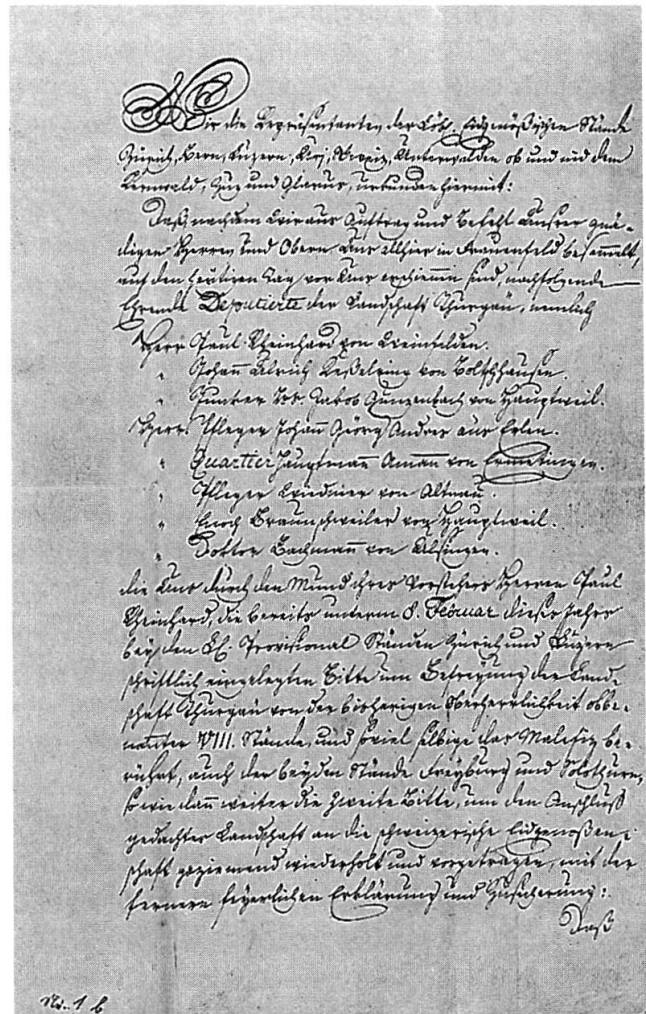 Wir die Repräsentanten der Löbl. Eidgnößischen Stände
Zürich, Bern, Luzern, Uri, Schweiz, Unterwalden ob und nid dem
Kernwald, Zug und Glarus, urkunden hiermit:
Daß nachdem Wir aus Auftrag und Befehl Unsrer gnä-
digen Herren und Obern Uns allhier in Frauenfeld besammelt,
auf den heutigen Tag vor Uns erschienen sind, nachfolgende
Ehrende Deputierte der Landschaft Thurgäu, nemlich
Herr Paul Rheinhard von Weinfelden.
" Johann Ulrich Keßelring von Boltshausen.
" Junker Dr. Jakob Gunzenbach von Hauptweil.
Herr Pfleger Johann Georg Andres aus Erlen.
" Quartier Hauptmann Amann von Ermetingen.
" Pfleger Widmer von Altnau.
" Enoch Brunschweiler von Hauptweil.
" Dottor Bachmann von
die Uns durch den Mund ihres Vorstehers Herren Paul
Rheinhard, die bereits unterm 8. Februar dieses Jahrs
bey den LL. Provisional Ständen Zürich und Luzern
schriftlich eingelegten Bitte um Befreyung der Land-
schaft Thurgäu von der bisherigen Oberherrlichkeit obbe-
nannter VIII. Stände, und soviel selbige das Malefiz be-
rührt, auch der beyden Stände Freyburg und Solothurn,
so wie dann weiter die zweite Bitte, um den Anschluß
gedachter Landschaft an die schweizerische Eidgnoßen-
schaft geziemend wiederholt und vorgetragen, mit der
fernern feyerlichen Erklärung und Zusicherung:
Daß
No. 1 b